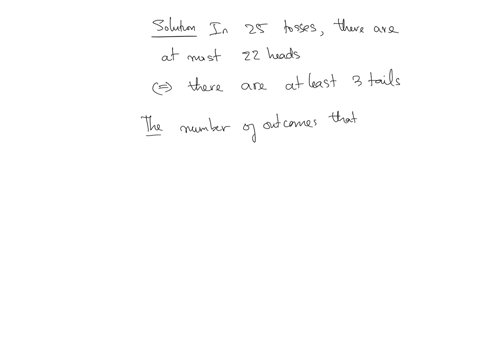 Solution In 25 tosses, there are
at most 22 heads
(⇒) there are at least 3 tails
The number of outcomes that